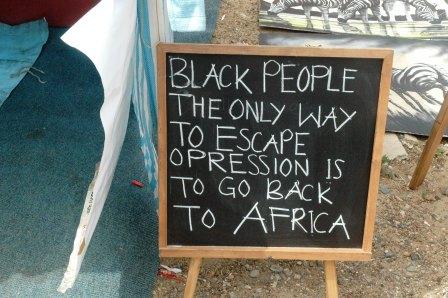 BLACK PEOPLE
THE ONLY WAY
TO ESCAPE
OPRESSION IS
TO GO BACK
TO AFRICA